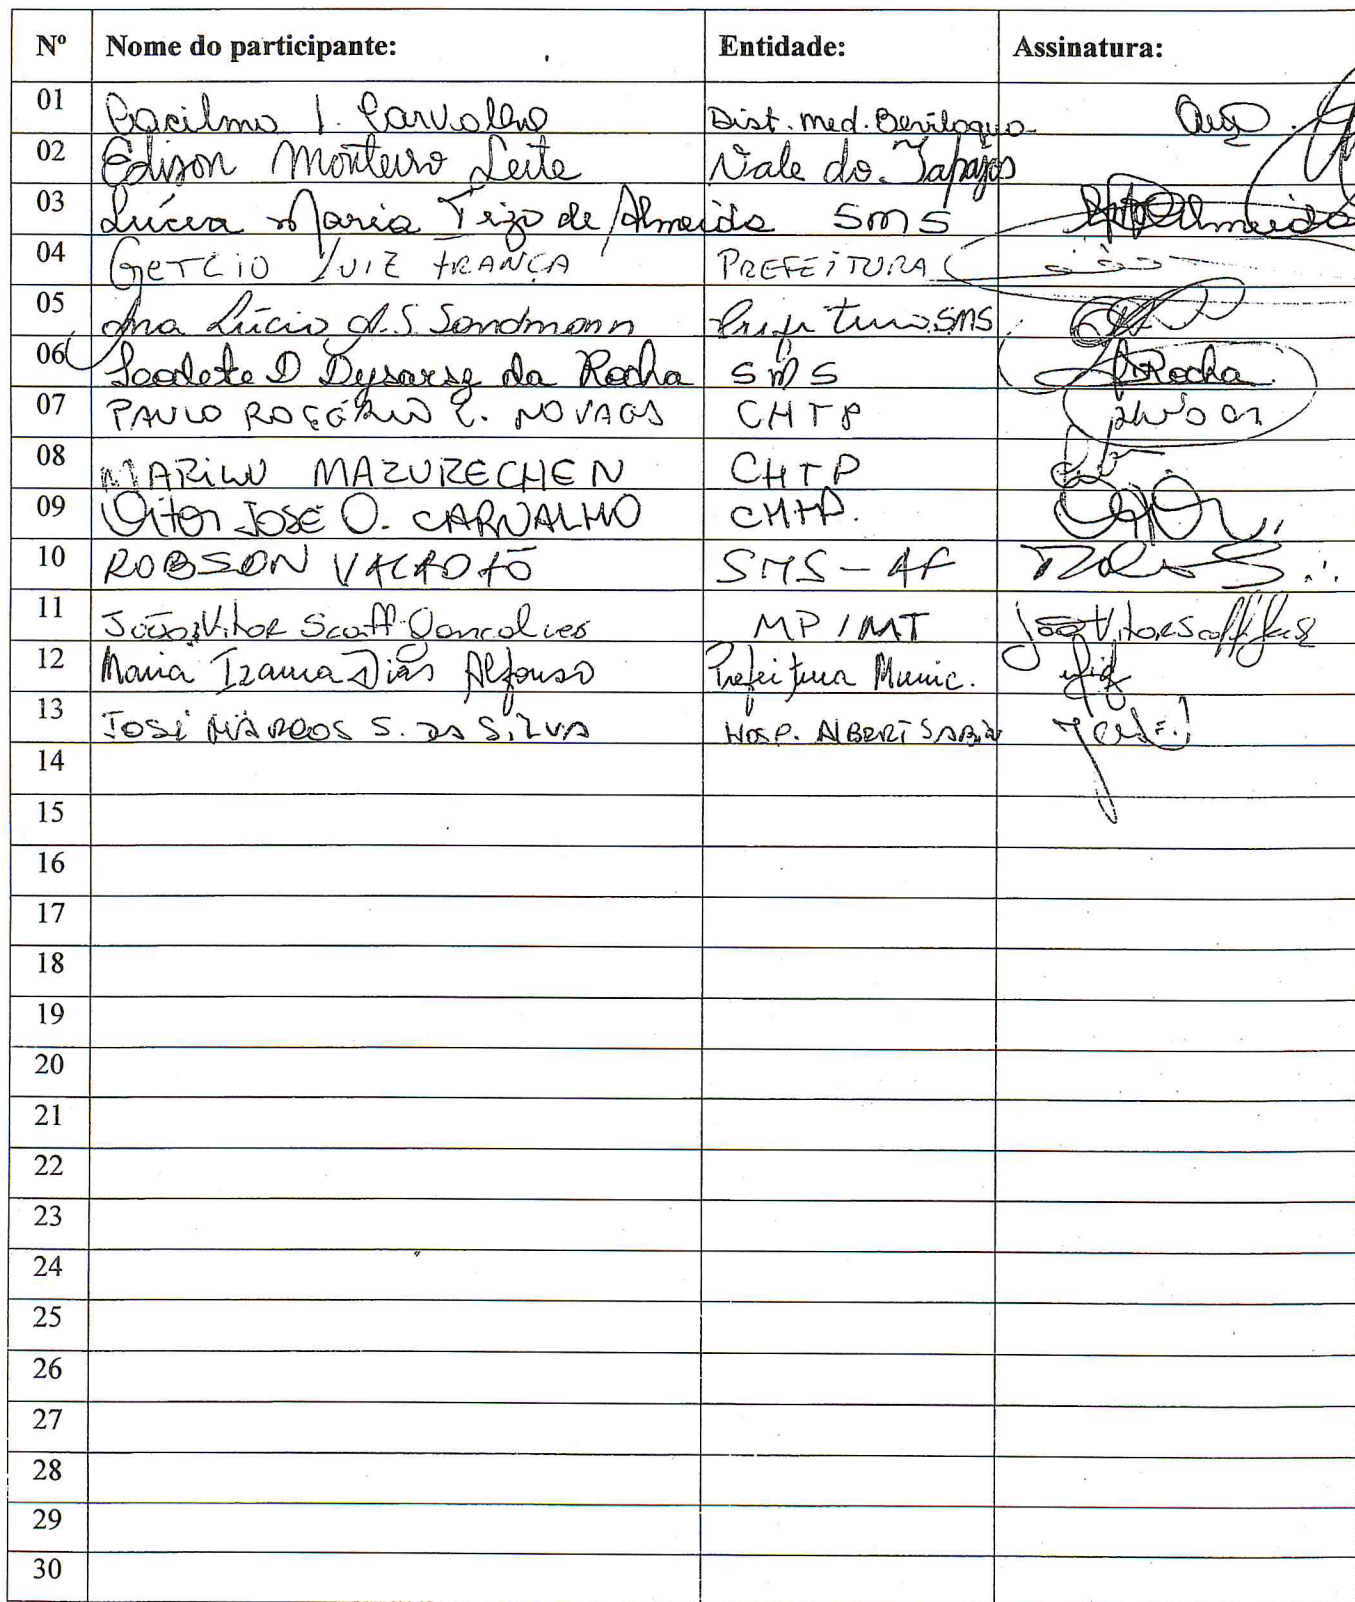 Nº Nome do participante: Entidade: Assinatura:
01 I. Carvalho Dist. Med. Bevilaqua
02 Edison Monteiro Leite Vale do Tapajos
03 Lúcia Maria Tizo de Almeida SMS Almeida
04 Getcio Luiz FRANÇA PREFEITURA
05 Ana Lúcia A.S. Sandmann Prefeitura SMS
06 D da Rocha SMS Rocha
07 PAULO ROGÉRIO NOVAES CHTP
08 MARILU MAZURECHEN CHTP
09 Vitor JOSÉ O. CARVALHO CHTP.
10 ROBSON SMS - AF
11 João Vitor Scatt Goncalves MP/MT João Vitor
12 Maria Izaura Dias Alfonso Prefeitura Munic.
13 JOSÉ MARCOS S. DA SILVA HOSP. ALBERT SABIN
14
15
16
17
18
19
20
21
22
23
24
25
26
27
28
29
30